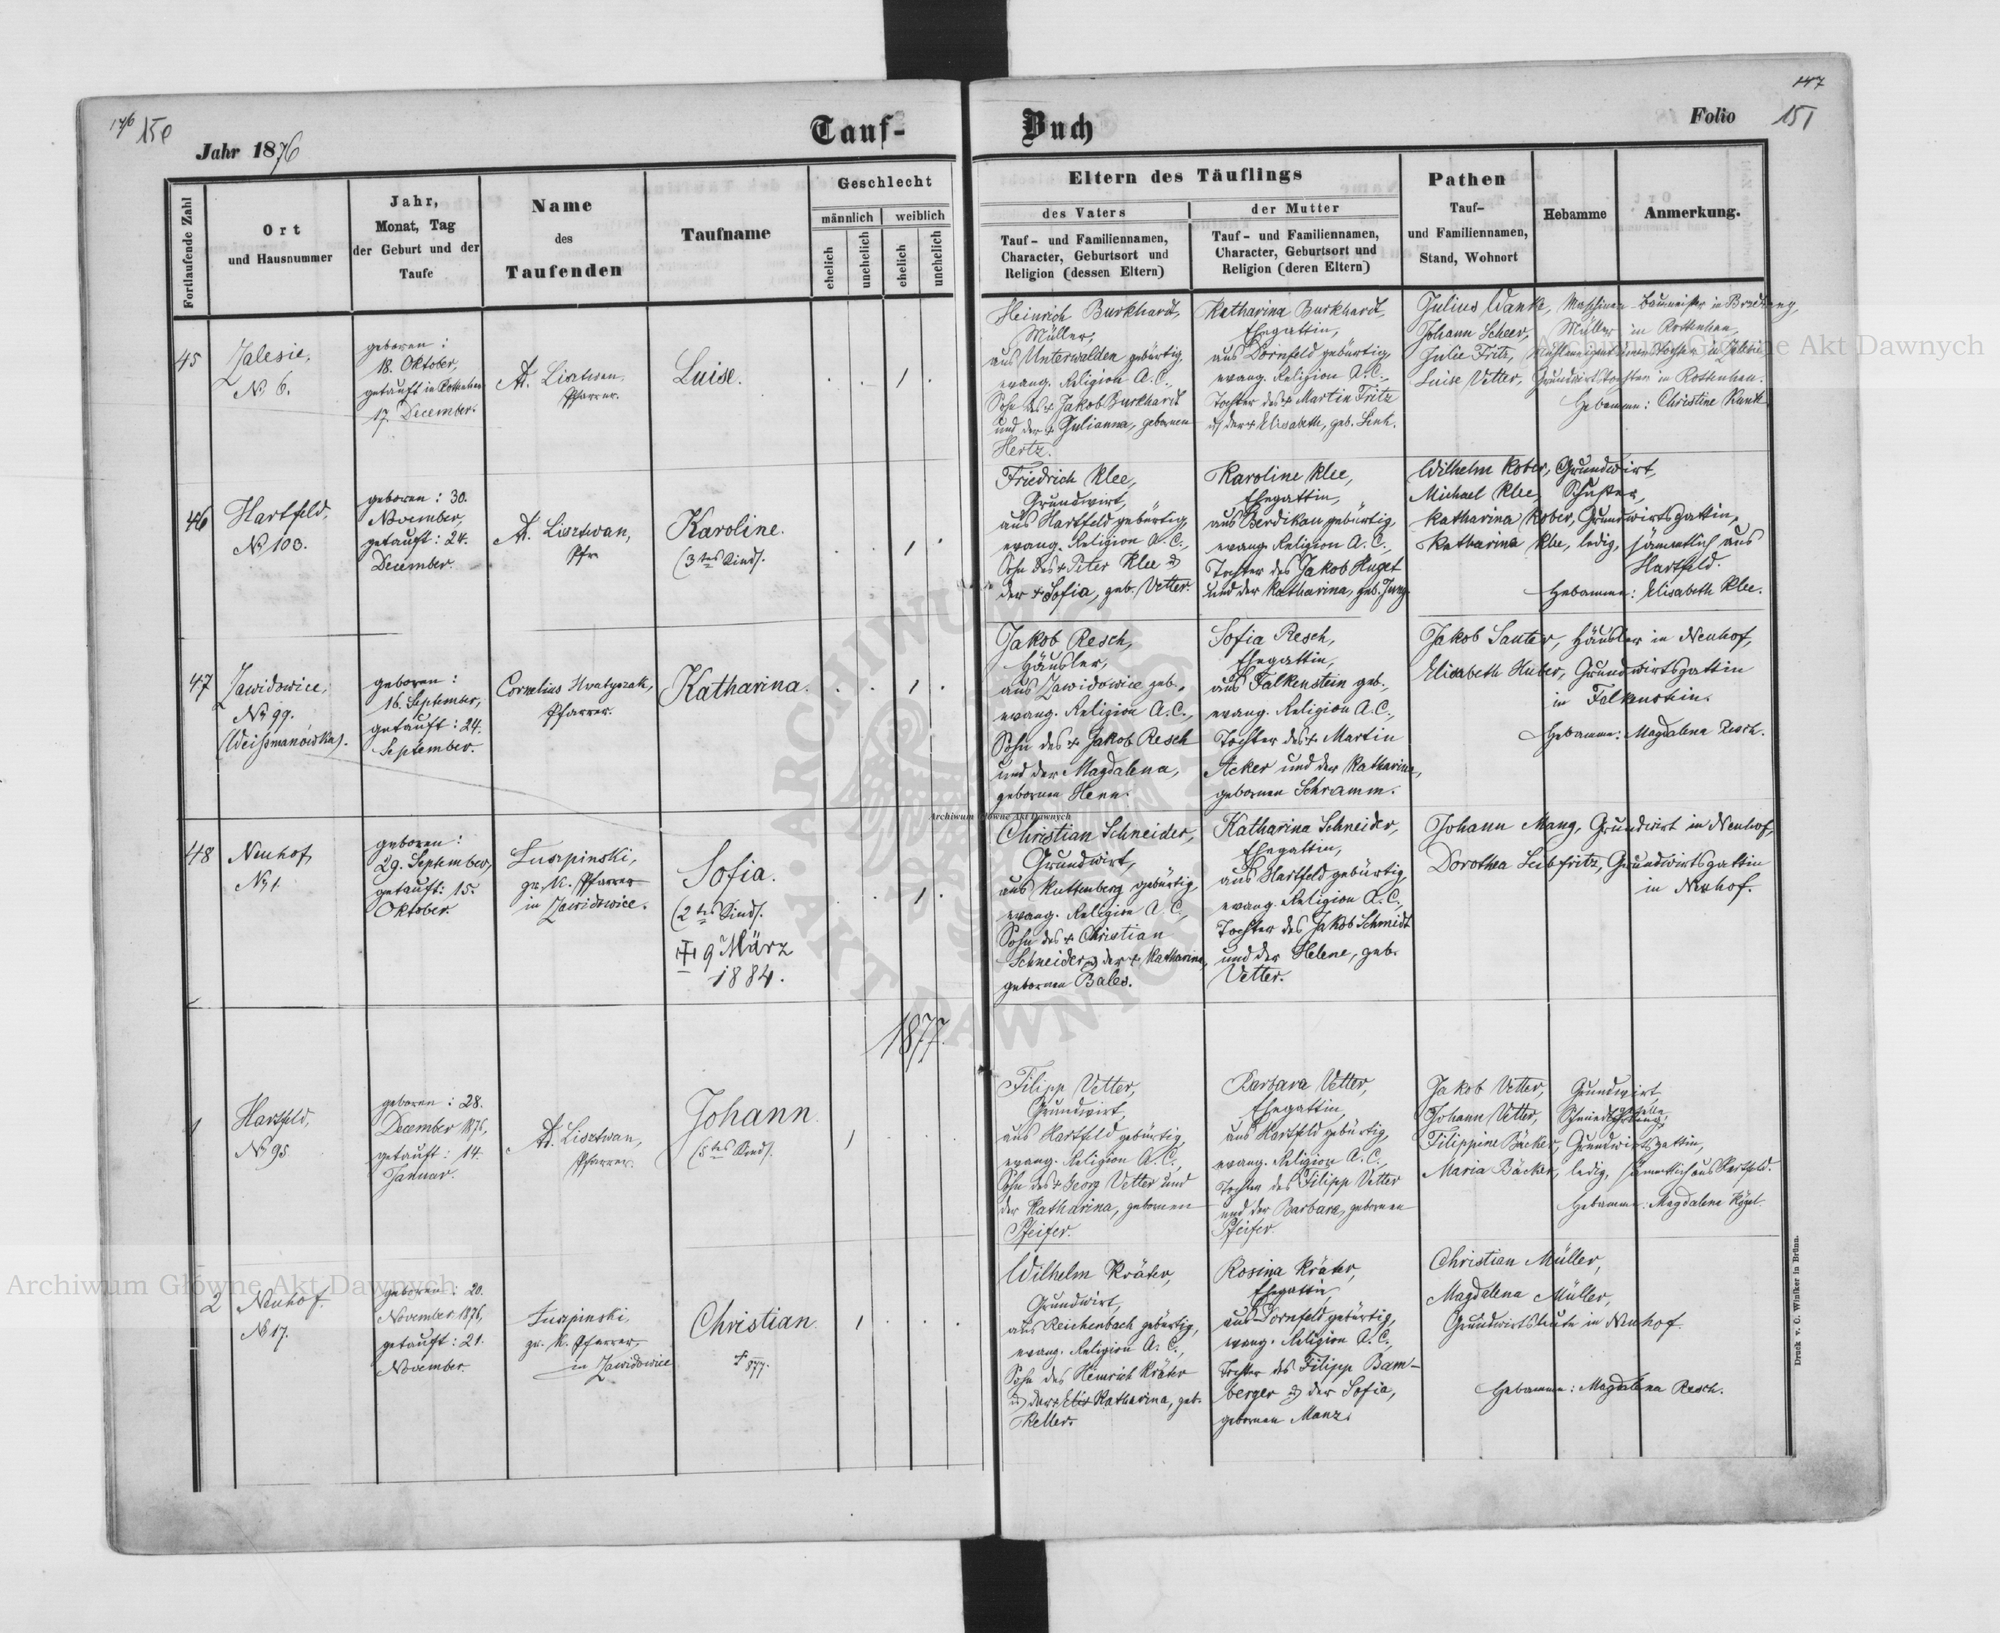 146 150
Jahr 1876
Tauf-
Buch
Folio 151
147
Fortlaufende Zahl
Ort
und Hausnummer
Jahr,
Monat, Tag
der Geburt und der
Taufe
Name
des
Taufenden
Taufname
Geschlecht
männlich
weiblich
ehelich
unehelich
ehelich
unehelich
Eltern des Täuflings
des Vaters
der Mutter
Tauf- und Familiennamen,
Character, Geburtsort und
Religion (dessen Eltern)
Tauf- und Familiennamen,
Character, Geburtsort und
Religion (deren Eltern)
Pathen
Tauf-
und Familiennamen,
Stand, Wohnort
Hebamme
Anmerkung.
45
Zalesie,
No 6.
geboren:
18. Oktober,
getauft in Rottenhan
17. December.
A. Lisztwan,
Pfarrer.
Luise.
1
Heinrich Burkhardt,
Müller,
aus Unterwalden gebürtig,
evang. Religion A.C.,
Sohn des + Jakob Burkhardt
und der + Julianna, gebornen
Hertz.
Katharina Burkhardt,
Ehegattin,
aus Dornfeld gebürtig,
evang. Religion A.C.,
Tochter des + Martin Fritz
u. der + Elisabeth, geb. Link.
Julius Wanke, Maschinen Baumeister in
Johann Scheer, Müller in Rottenhan,
Julie Fritz, Tochter in Zalesie
Luise Vetter, Grundwirtstochter in Rottenhan.
Hebamme: Christine Kunk.
46
Hartfeld,
No 103.
geboren: 30.
November,
getauft: 24.
December.
A. Lisztwan,
Pfr.
Karoline.
(3tes Kind).
1
Friedrich Klee,
Grundwirt,
aus Hartfeld gebürtig,
evang. Religion A.C.,
Sohn des + Peter Klee u.
der + Sofia, geb. Vetter.
Karoline Klee,
Ehegattin,
aus Berdikau gebürtig,
evang. Religion A.C.,
Tochter des Jakob Huget
und der Katharina, geb. Jung.
Wilhelm Kober, Grundwirt,
Michael Klee, Schuster,
Katharina Kober, Grundwirtsgattin,
Katharina Klee, ledig, sämmtlich aus
Hartfeld.
Hebamme: Elisabeth Klee.
47
Zawidowice,
No 99.
(Weißmanówka).
geboren:
16. September,
getauft: 24.
September.
Cornelius Hvatyczak,
Pfarrer.
Katharina.
1
Jakob Resch,
Häusler,
aus Zawidowice geb.,
evang. Religion A.C.,
Sohn des + Jakob Resch
und der Magdalena,
gebornen Henn.
Sofia Resch,
Ehegattin,
aus Falkenstein geb.,
evang. Religion A.C.,
Tochter des + Martin
Acker und der Katharina,
gebornen Schramm.
Jakob Sauter, Häusler in Neuhof,
Elisabeth Huber, Grundwirtsgattin
in Falkenstein.
Hebamme: Magdalena Resch.
48
Neuhof,
No 1.
geboren:
29. September,
getauft: 15.
Oktober.
Luszpinski,
gr. k. Pfarrer
in Zawidowice.
Sofia.
(2tes Kind).
+ 9 März
1884.
1
Christian Schneider,
Grundwirt,
aus Kuttenberg gebürtig,
evang. Religion A.C.,
Sohn des + Christian
Schneider u. der + Katharina,
gebornen Bales.
Katharina Schneider,
Ehegattin,
aus Hartfeld gebürtig,
evang. Religion A.C.,
Tochter des Jakob Schmidt
und der Helene, geb.
Vetter.
Johann Mang, Grundwirt in Neuhof,
Dorothea Leibfritz, Grundwirtsgattin
in Neuhof.
1877.
1
Hartfeld,
No 95.
geboren: 28.
December 1876,
getauft: 14.
Januar.
A. Lisztwan,
Pfarrer.
Johann.
(5tes Kind).
1
Filipp Vetter,
Grundwirt,
aus Hartfeld gebürtig,
evang. Religion A.C.,
Sohn des + Georg Vetter und
der Katharina, gebornen
Pfeifer.
Barbara Vetter,
Ehegattin,
aus Hartfeld gebürtig,
evang. Religion A.C.,
Tochter des Filipp Vetter
und der Barbara, gebornen
Pfeifer.
Jakob Vetter, Grundwirt
Johann Vetter,
Filippine Bäcker, Grundwirtsgattin,
Maria Bäcker, ledig, sämmtlich aus Hartfeld.
Hebamme: Magdalena Kögel.
2
Neuhof.
No 17.
geboren: 20.
November 1876,
getauft: 21.
November.
Luszpinski,
gr. k. Pfarrer
in Zawidowice
Christian.
+ 877.
1
Wilhelm Kräter,
Grundwirt,
aus Reichenbach gebürtig,
evang. Religion A.C.,
Sohn des Heinrich Kräter
u. der + Katharina, geb.
Keller.
Rosina Kräter,
Ehegattin,
aus Dornfeld gebürtig,
evang. Religion A.C.,
Tochter des Filipp Bam-
berger u. der Sofia,
gebornen Manz.
Christian Müller,
Magdalena Müller,
Grundwirtsleute in Neuhof.
Hebamme: Magdalena Resch.
Druck v. C. Winiker in Brünn.
Archiwum Główne Akt Dawnych
Archiwum Główne Akt Dawnych
Archiwum Główne Akt Dawnych
ARCHIWUM GŁÓWNE AKT DAWNYCH